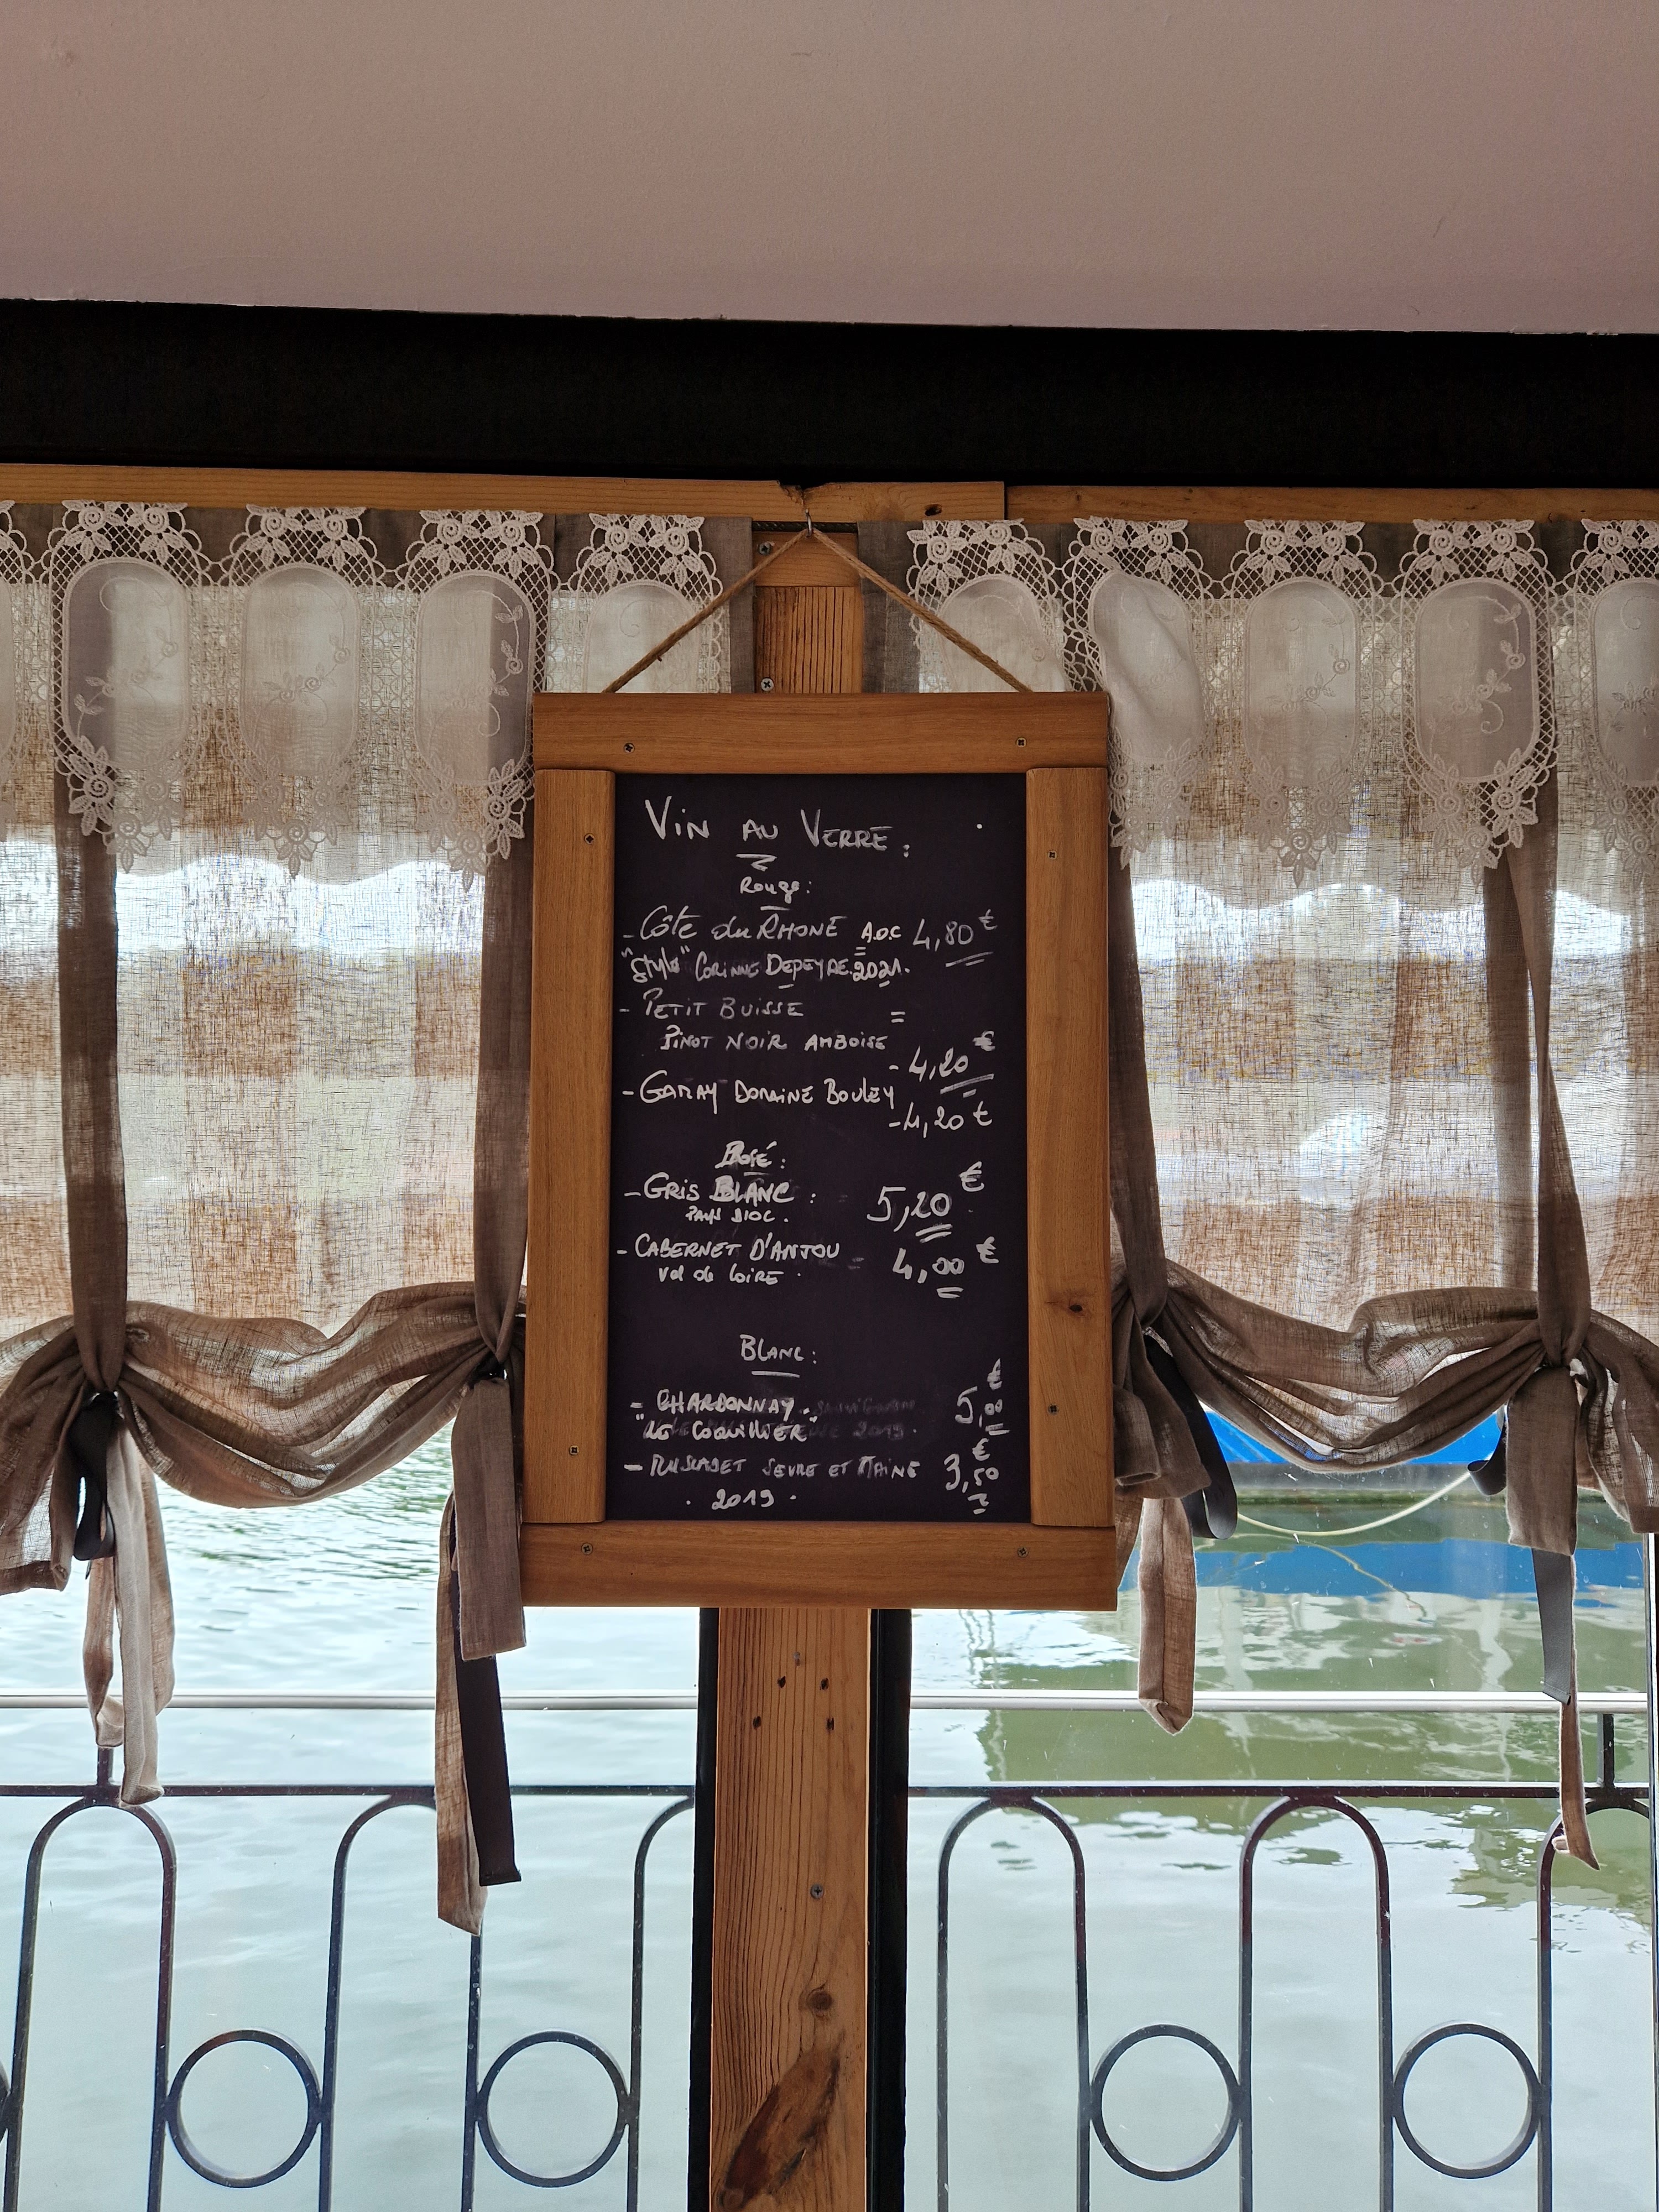 Vin au Verre :
Rouge :
- Côte du Rhone A.O.C 4,80 €
"Style" Corinne Depeyre 2021.
- Petit Buisse =
Pinot Noir Amboise
- 4,20 €
- Gamay Domaine Bouley
- 4,20 €
Rosé :
- Gris Blanc : 5,20 €
Pays d'Oc.
- Cabernet d'Anjou = 4,00 €
Val de Loire .
Blanc :
- Chardonnay . 5,00 €
"Le Coquillier"
- Muscadet Sevre et Maine 3,50 €
. 2019 .